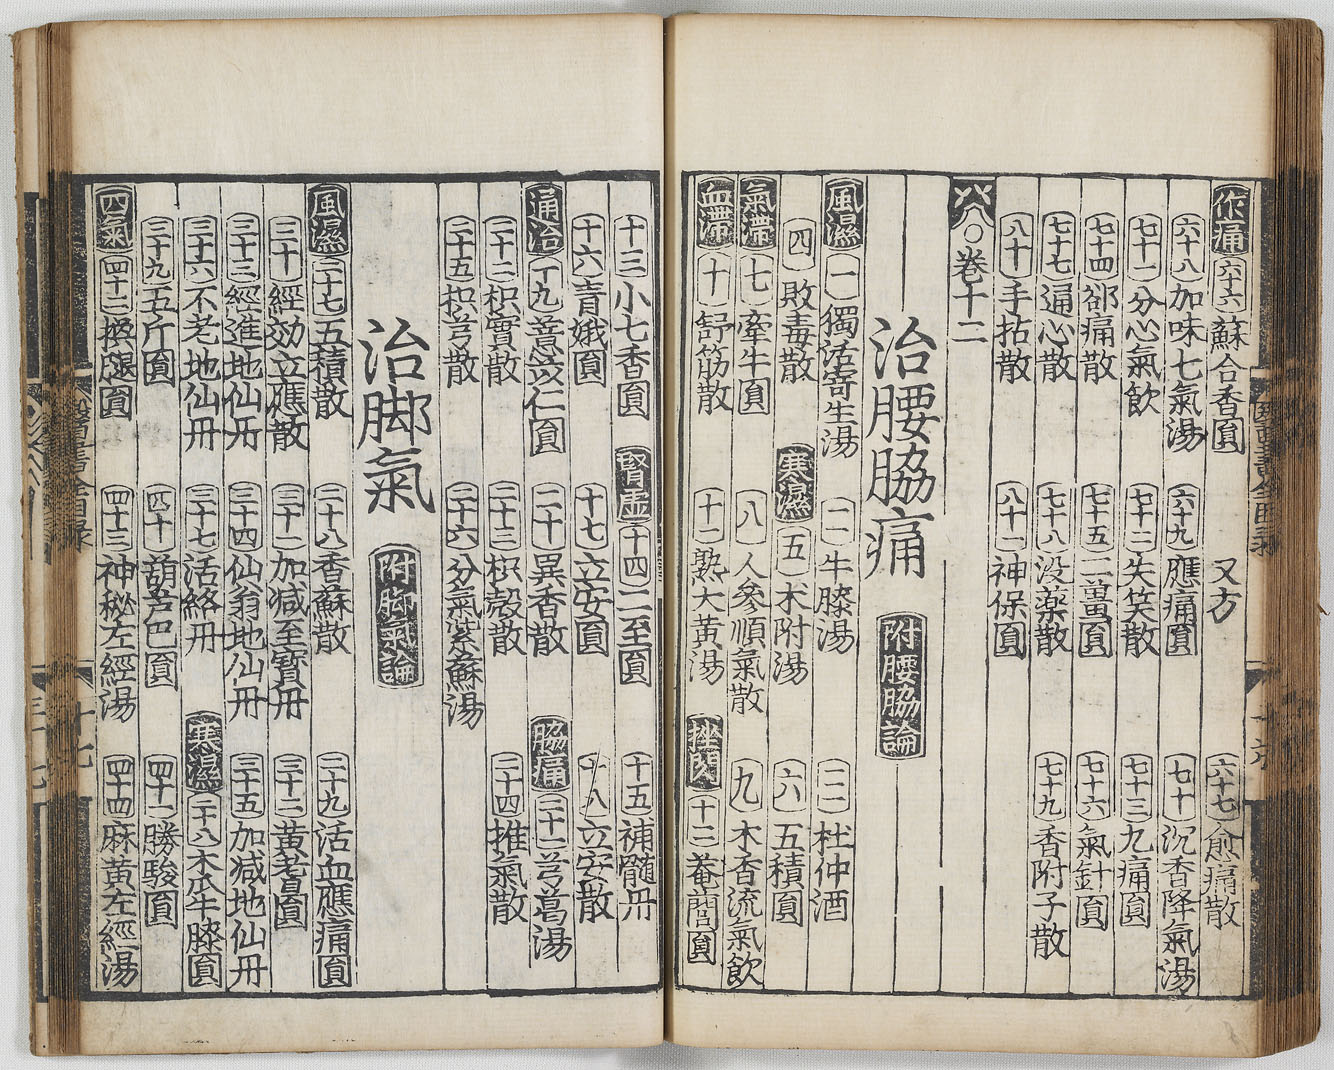 作痛 六十六 蘇合香圓 又方 六十七 愈痛散
六十八 加味七氣湯 六十九 應痛圓 七十 沉香降氣湯
七十一 分心氣飲 七十二 失笑散 七十三 九痛圓
七十四 卻痛散 七十五 二薑圓 七十六 氣針圓
七十七 通心散 七十八 没藥散 七十九 香附子散
八十 手拈散 八十一 神保圓
卷十二
治腰脇痛 附腰脇論
風濕 一 獨活寄生湯 二 牛膝湯 三 杜仲酒
四 敗毒散 寒濕 五 术附湯 六 五積圓
氣滯 七 牽牛圓 八 人參順氣散 九 木香流氣飲
血滯 十 舒筋散 十一 熟大黄湯 挫閃 十二 菴䕡圓
十三 小七香圓 腎虛 十四 二至圓 十五 補髓丹
十六 青娥圓 十七 立安圓 十八 立安散
通治 十九 薏苡仁圓 二十 異香散 脇痛 二十一 芎葛湯
二十二 枳實散 二十三 枳殼散 二十四 推氣散
二十五 枳芎散 二十六 分氣紫蘇湯
治脚氣 附脚氣論
風濕 二十七 五積散 二十八 香蘇散 二十九 活血應痛圓
三十 經効立應散 三十一 加减至寳丹 三十二 黄耆圓
三十三 經進地仙丹 三十四 仙翁地仙丹 三十五 加减地仙丹
三十六 不老地仙丹 三十七 活絡丹 寒濕 三十八 木瓜牛膝圓
三十九 五斤圓 四十 葫蘆巴圓 四十一 勝駿圓
四氣 四十二 換腿圓 四十三 神秘左經湯 四十四 麻黄左經湯